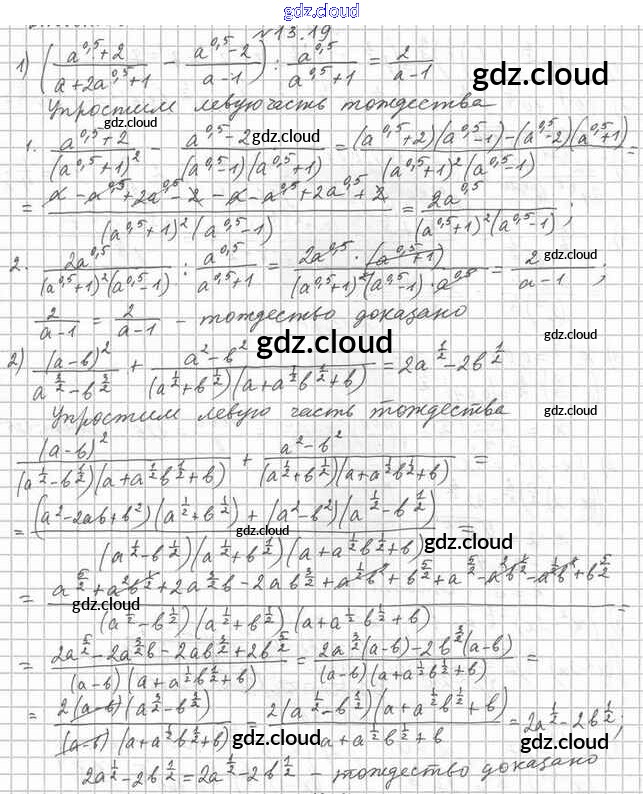 gdz.cloud
№13.19
1) ((a^0,5+2)/(a+2a^0,5+1) - (a^0,5-2)/(a-1)) : a^0,5/(a^0,5+1) = 2/(a-1)
gdz.cloud
Упростим левую часть тождества
gdz.cloud
1. (a^0,5+2)/(a^0,5+1)^2 - (a^0,5-2)/((a^0,5-1)(a^0,5+1)) = ((a^0,5+2)(a^0,5-1)-(a^0,5-2)(a^0,5+1))/((a^0,5+1)^2(a^0,5-1)) =
gdz.cloud
= (a-a^0,5+2a^0,5-2-a-a^0,5+2a^0,5+2)/((a^0,5+1)^2(a^0,5-1)) = 2a^0,5/((a^0,5+1)^2(a^0,5-1));
gdz.cloud
2. 2a^0,5/((a^0,5+1)^2(a^0,5-1)) : a^0,5/(a^0,5+1) = (2a^0,5·(a^0,5+1))/((a^0,5+1)^2(a^0,5-1)·a^0,5) = 2/(a-1);
gdz.cloud
2/(a-1) = 2/(a-1) - тождество доказано
gdz.cloud
gdz.cloud
2) (a-b)^2/(a^3/2-b^3/2) + (a^2-b^2)/((a^1/2+b^1/2)(a+a^1/2b^1/2+b)) = 2a^1/2-2b^1/2
Упростим левую часть тождества
gdz.cloud
(a-b)^2/((a^1/2-b^1/2)(a+a^1/2b^1/2+b)) + (a^2-b^2)/((a^1/2+b^1/2)(a+a^1/2b^1/2+b)) =
= ((a^2-2ab+b^2)(a^1/2+b^1/2)+(a^2-b^2)(a^1/2-b^1/2))/((a^1/2-b^1/2)(a^1/2+b^1/2)(a+a^1/2b^1/2+b)) =
gdz.cloud
gdz.cloud
gdz.cloud
= (2a^5/2-2a^3/2b-2ab^3/2+2b^5/2)/((a-b)(a+a^1/2b^1/2+b)) = (2a^3/2(a-b)-2b^3/2(a-b))/((a-b)(a+a^1/2b^1/2+b)) =
= (2(a-b)(a^3/2-b^3/2))/((a-b)(a+a^1/2b^1/2+b)) = (2(a^1/2-b^1/2)(a+a^1/2b^1/2+b))/(a+a^1/2b^1/2+b) = 2a^1/2-2b^1/2;
gdz.cloud
gdz.cloud
2a^1/2-2b^1/2 = 2a^1/2-2b^1/2 - тождество доказано